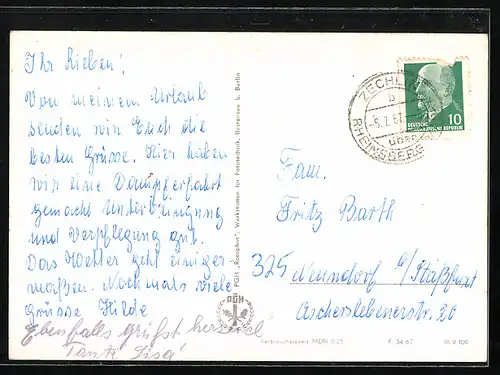 Ihr Lieben!
Von meinem Urlaub
senden wir Euch die
besten Grüsse. Hier haben
wir eine Dampferfahrt
gemacht Unterbringung
und Verpflegung gut.
Das Wetter geht einiger-
maßen. Nochmals viele
Grüsse Hilde
Ebenfalls grüßt herzlich
Tante Lisa
PGH „Rotophot", Werkstätten für Fototechnik, Bestensee b. Berlin
PGH
ZECHLIN
b
-9.7.67
RHEINSBERG
DEUTSCHE
DEMOKRATISCHE REPUBLIK
10
Fam.
Fritz Barth
325 Neundorf b/Staßfurt
Ascherslebenerstr. 20
Verbraucherpreis MDN 0,25
F 34 67
III 9 109